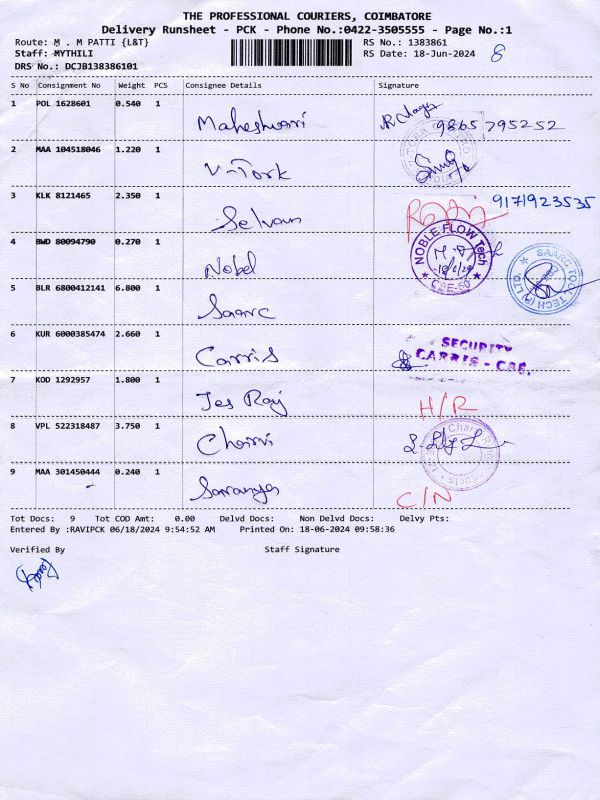 THE PROFESSIONAL COURIERS, COIMBATORE
Delivery Runsheet - PCK - Phone No.:0422-3505555 - Page No.:1
Route: M . M PATTI {L&T} RS No.: 1383861
Staff: MYTHILI RS Date: 18-Jun-2024 8
DRS No.: DCJB138386101
S No Consignment No Weight PCS Consignee Details Signature
1 POL 1628601 0.540 1 Maheshwari 9865 795252
2 MAA 104518046 1.220 1 V-Tork
3 KLK 8121465 2.350 1 Selvan 9171923535
4 BWD 80094790 0.270 1 Nobel NOBLE FLOW Tech CBE-50
5 BLR 6800412141 6.800 1 Saarc SAARC TOOL TECH (P) LTD.
6 KUR 6000385474 2.660 1 Carris SECURITY CARRIS - CBE.
7 KOD 1292957 1.800 1 Jes Raj H/R
8 VPL 522318487 3.750 1 Charri
9 MAA 301450444 0.240 1 Saranya C/N
Tot Docs: 9 Tot COD Amt: 0.00 Delvd Docs: Non Delvd Docs: Delvy Pts:
Entered By :RAVIPCK 06/18/2024 9:54:52 AM Printed On: 18-06-2024 09:58:36
Verified By Staff Signature